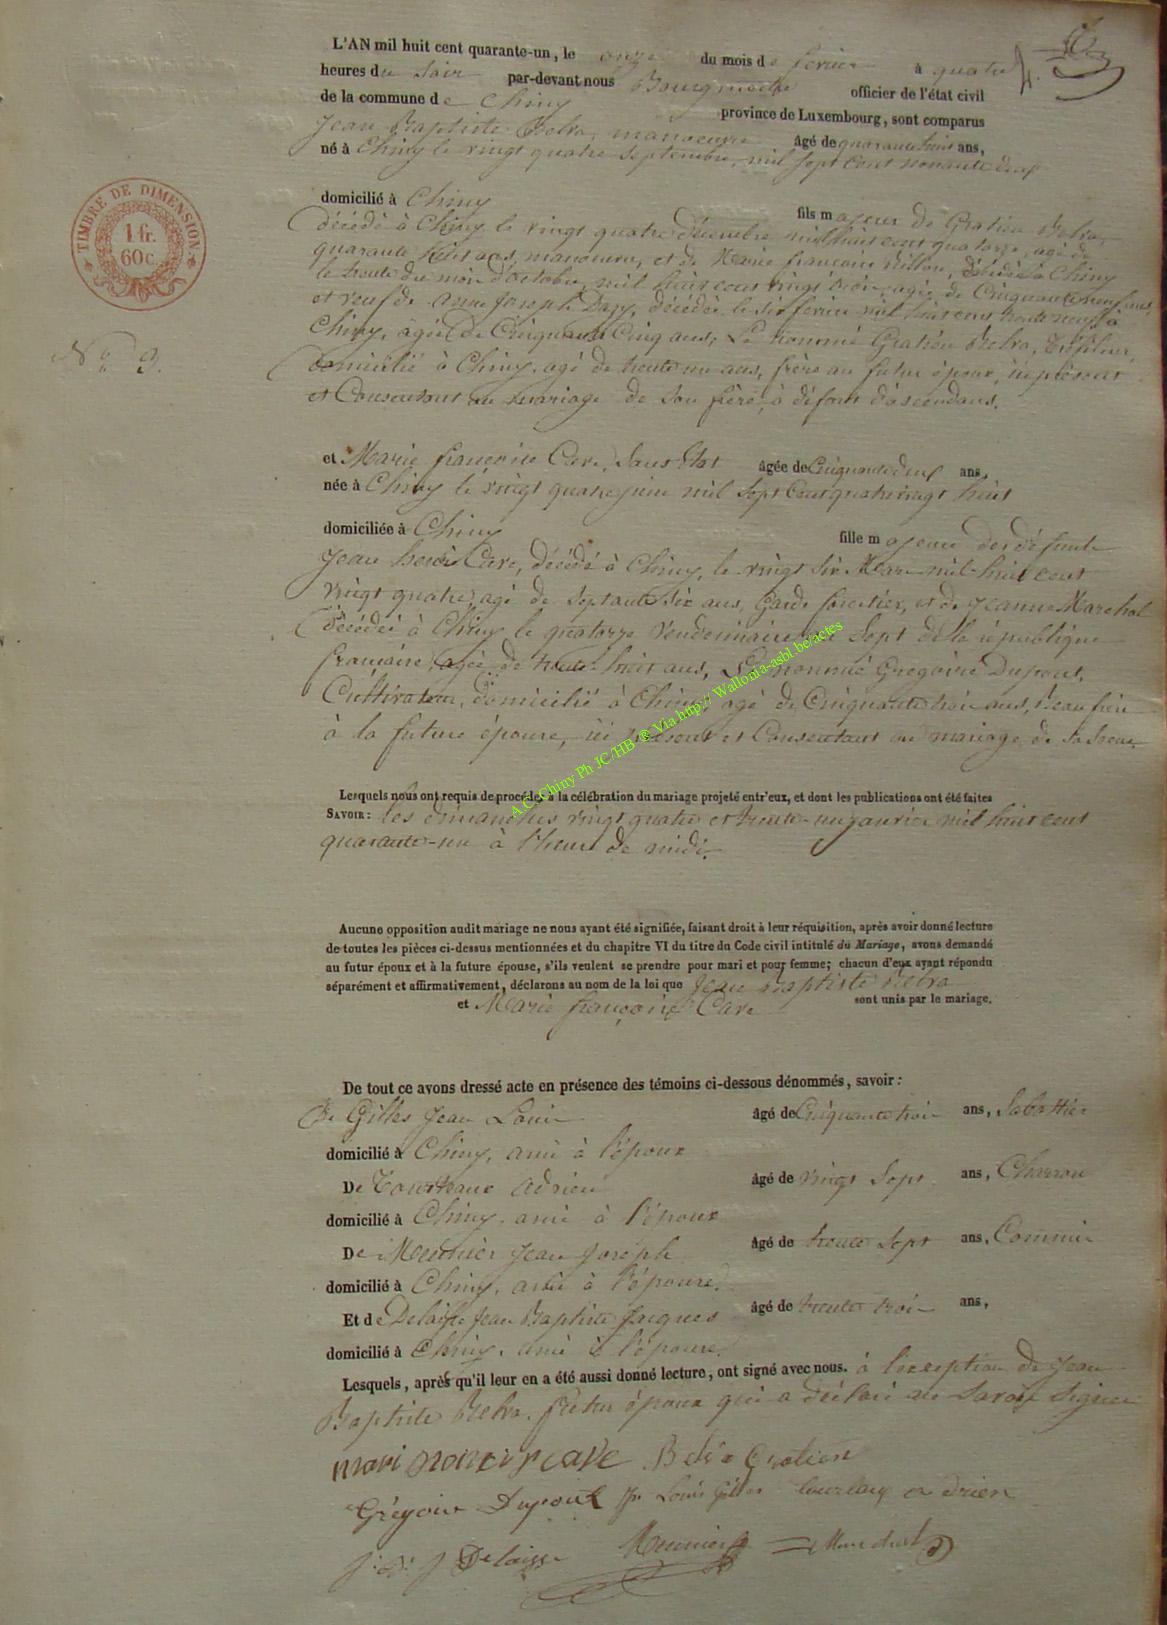 L'AN mil huit cent quarante-un, le onze du mois de fevrier à quatre
heures du soir par-devant nous Bourgmestre officier de l'état civil
de la commune de Chiny province de Luxembourg, sont comparus
Jean Baptiste Belva, manoeuvre âgé de quarante huit ans,
né à Chiny le vingt quatre septembre, mil sept cent nonante deux
domicilié à Chiny fils majeur de Gratien Belva,
décédé à Chiny le vingt quatre décembre mil huit cent quatorze, agé de
quarante huit ans, manoeuvre, et de Marie françoise Millon, décédée à Chiny
le trente du mois d'octobre, mil huit cent vingt trois, agée de Cinquante neuf ans,
et veuf de anne Joseph Dazy, décédée le six fevrier mil huit cent trente neuf à
Chiny, agée de Cinquante Cinq ans, Le nommé Gratien Belva,
domicilié à Chiny, agé de trente un ans, frère au futur époux, ici présent
et Consentant au mariage de son frère, à défaut d'ascendans.
N° 9.
TIMBRE DE DIMENSION
1 fr.
60 c.
et Marie françoise Cave, Sans Etat âgée de Cinquante deux ans,
née à Chiny le vingt quatre juin mil sept Cent quatre vingt huit
domiciliée à Chiny fille majeure des défunts
Jean henri Cave, décédé à Chiny, le vingt six Mars mil huit cent
vingt quatre, agé de Septante Six ans, Garde forestier, et de Jeanne Marchal
décédée à Chiny le quatorze Vendemiaire an Sept de la république
francaise, agée de trente huit ans, Le nommé Gregoire Dupont,
Cultivateur, domicilié à Chiny, agé de Cinquante trois ans, beau frère
à la future épouse, ici présent et Consentant au mariage de sa Soeur.
A.C. Chiny Ph JC/HB ® Via http:// Wallonia-asbl.be/actes
Lesquels nous ont requis de procéder à la célébration du mariage projeté entr'eux, et dont les publications ont été faites
SAVOIR : les dimanches vingt quatre et trente-un janvier mil huit cent
quarante-un à l'heure de midi.
Aucune opposition audit mariage ne nous ayant été signifiée, faisant droit à leur réquisition, après avoir donné lecture
de toutes les pièces ci-dessus mentionnées et du chapitre VI du titre du Code civil intitulé du Mariage, avons demandé
au futur époux et à la future épouse, s'ils veulent se prendre pour mari et pour femme; chacun d'eux ayant répondu
séparément et affirmativement, déclarons au nom de la loi que Jean Baptiste Belva
et Marie françoise Cave sont unis par le mariage.
De tout ce avons dressé acte en présence des témoins ci-dessous dénommés, savoir :
De Gilles Jean Louis âgé de Cinquante trois ans, Sabottier
domicilié à Chiny, ami à l'époux
De Tourteaux Adrien âgé de vingt Sept ans, Charron
domicilié à Chiny, ami à l'époux
De Meunier Jean Joseph âgé de trente Sept ans, Commis
domicilié à Chiny, ami à l'épouse,
Et de Delaisse Jean Baptiste Jacques âgé de trente trois ans,
domicilié à Chiny, ami à l'épouse.
Lesquels, après qu'il leur en a été aussi donné lecture, ont signé avec nous. à l'exception de Jean
Baptiste Belva, futur époux qui a déclaré ne Savoir Signer
Belva Gratien
Grégoire Dupont Jn Louis Gilles adrien
J: B: J Delaisse Meunier